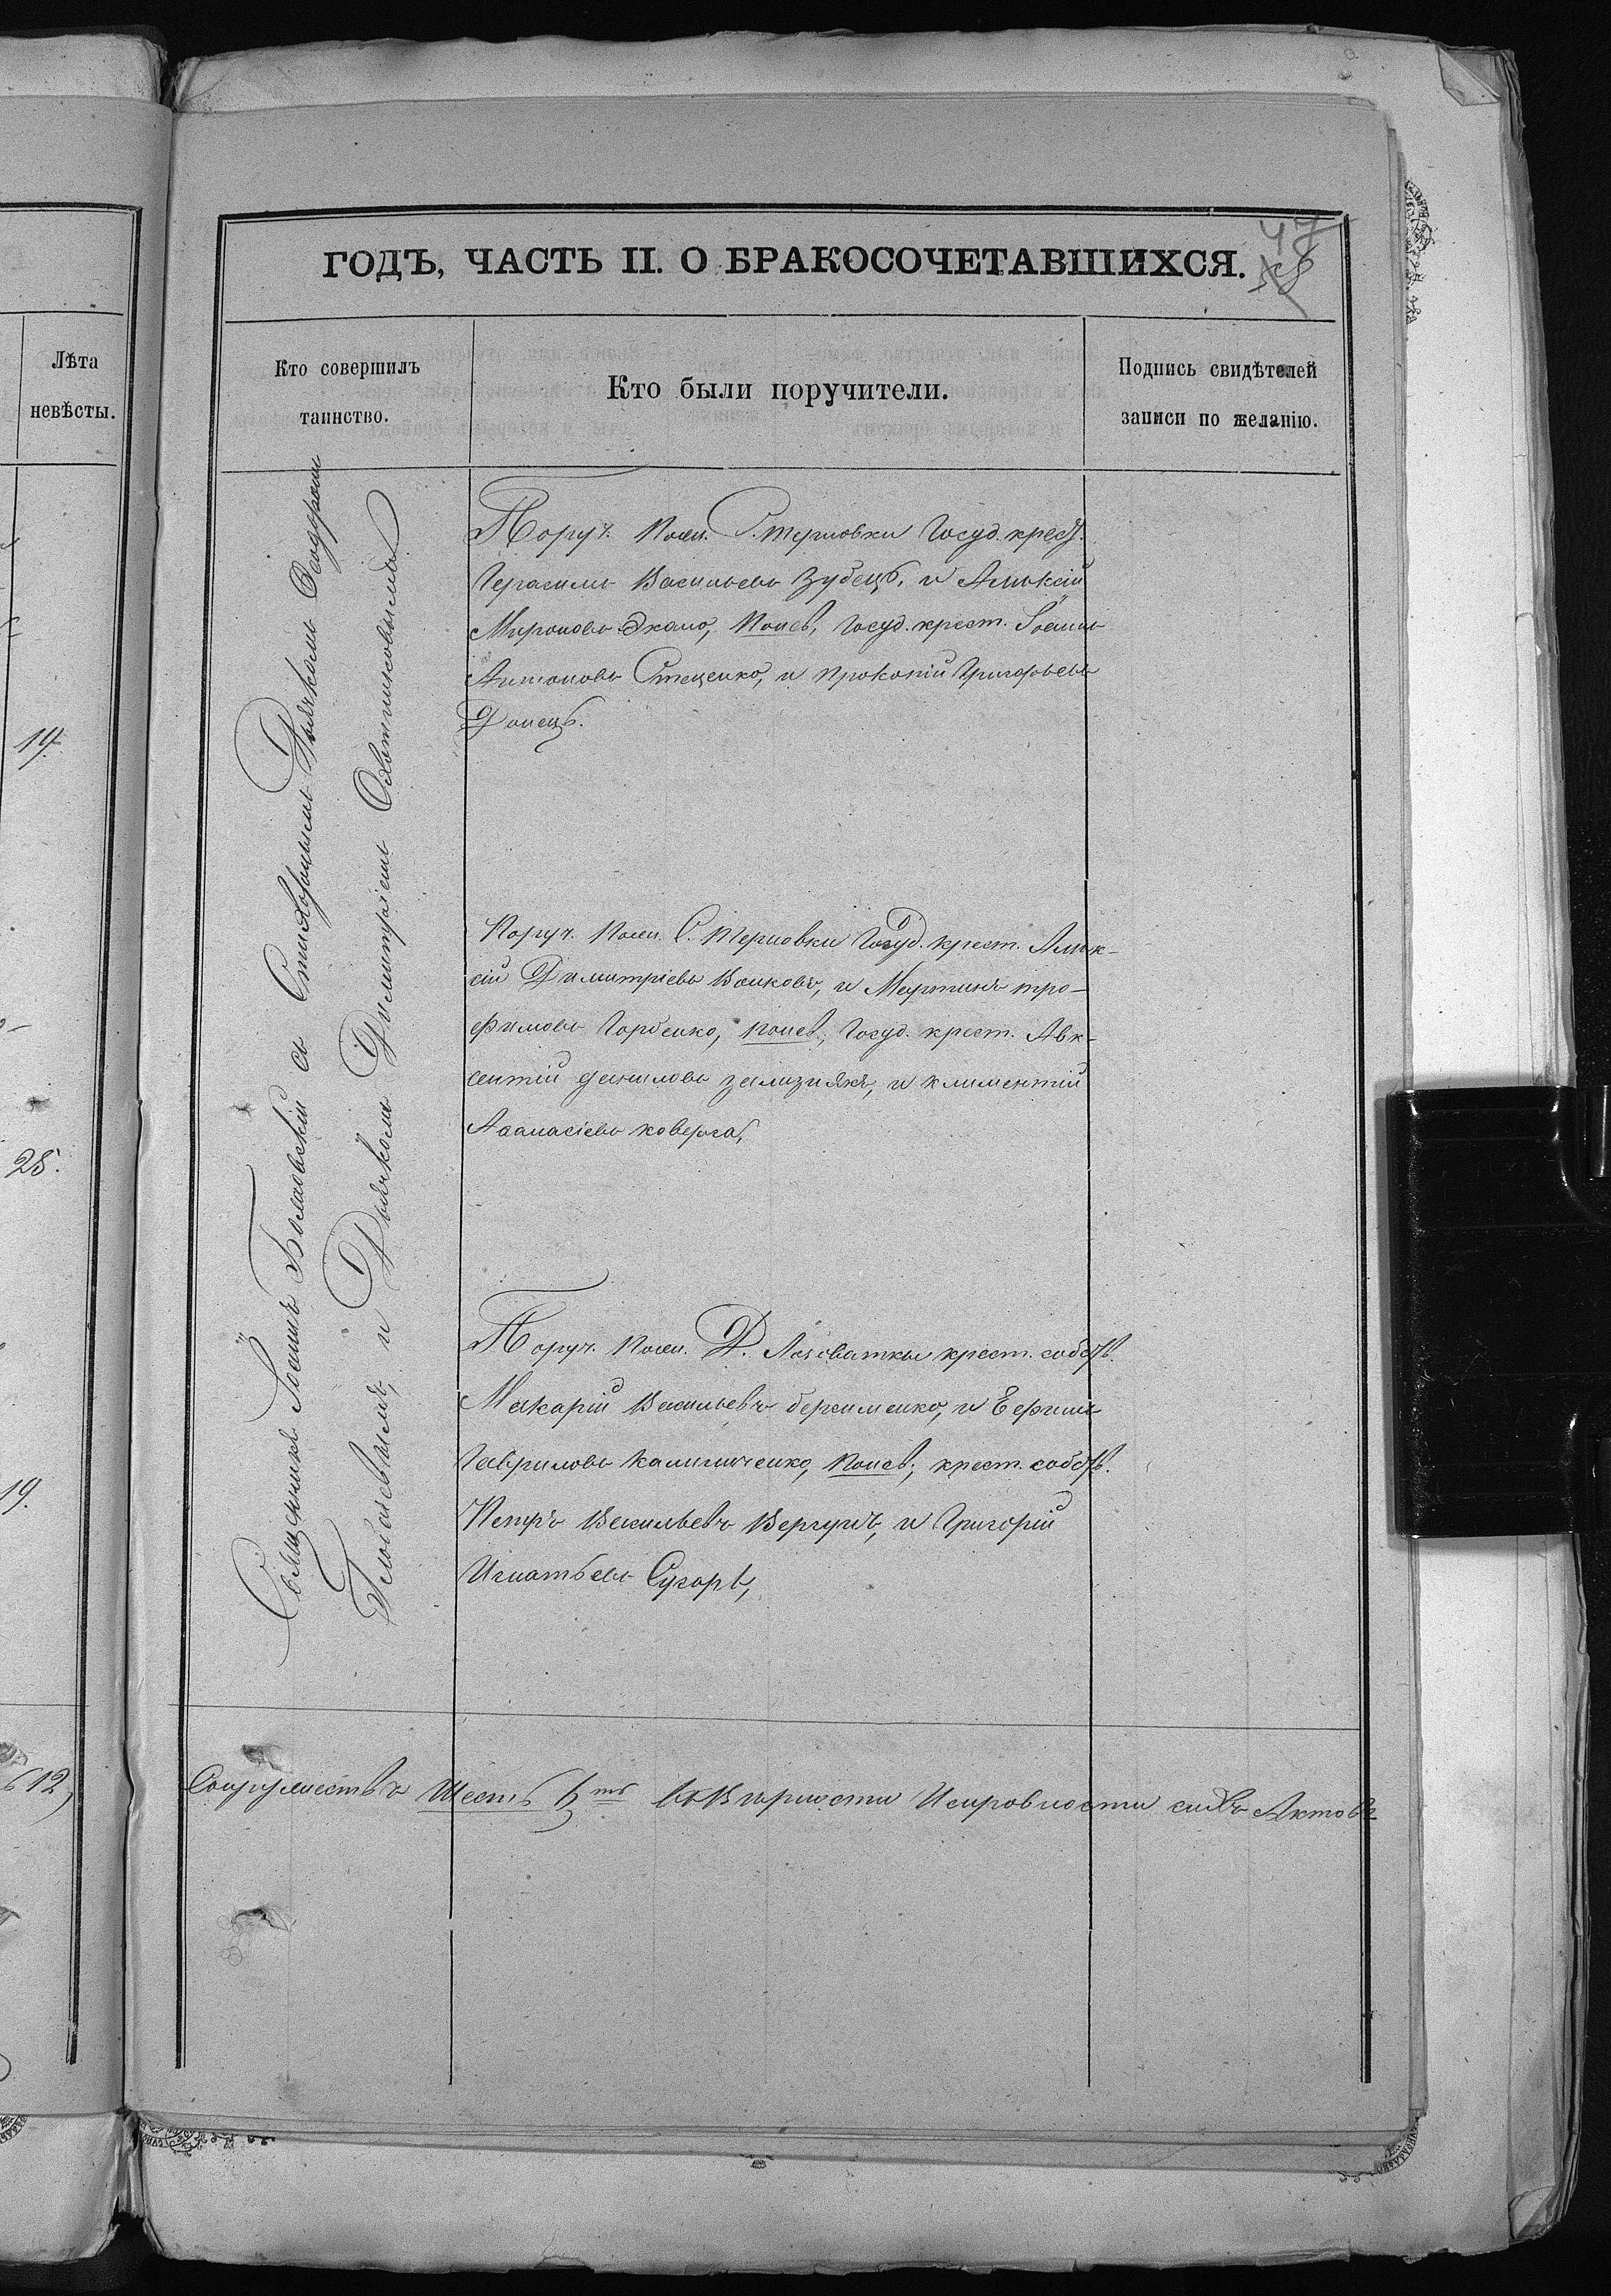 Лѣта
невѣсты.
19.
25.
19.
12,
ГОДЪ, ЧАСТЬ II. О БРАКОСОЧЕТАВШИХСЯ.
47
Кто совершилъ
таинство.
Кто были поручители.
Подпись свидѣтелей
записи по желанію.
Священникъ Іоаннъ съ Стихарнымъ Дьячкомъ Ѳеодоромъ
и Дьячкомъ Димитріемъ
Поруч. Жен. С. Терновки Госуд. крест.
Герасимъ Васильевъ Зубецъ, и Алексій
Мироновъ Невѣс. Госуд. крест. Іоаннъ
Антоновъ Стеценко, и Прокопій Григорьевъ
Донецъ.
Поруч. Жен. С. Терновки Госуд. крест. Алек-
сій Димитріевъ Волковъ, и Мартинъ Тро-
фимовъ Горбенко, Невѣс. Госуд. крест. Авк-
сентій Даниловъ Зализнякъ, и Климентій
Аѳанасіевъ Коверга,
Поруч. Жен. Д. Лозоватки крест. собств.
Макарій Васильевъ и Ефимъ
Гавриловъ Калиниченко, Невѣс. крест. собств.
Петръ Васильевъ Вергунъ, и Григорій
Игнатьевъ Сугаръ,
Супружествъ Шесть 6ть Въ Вѣрности Исправности сихъ Актовъ